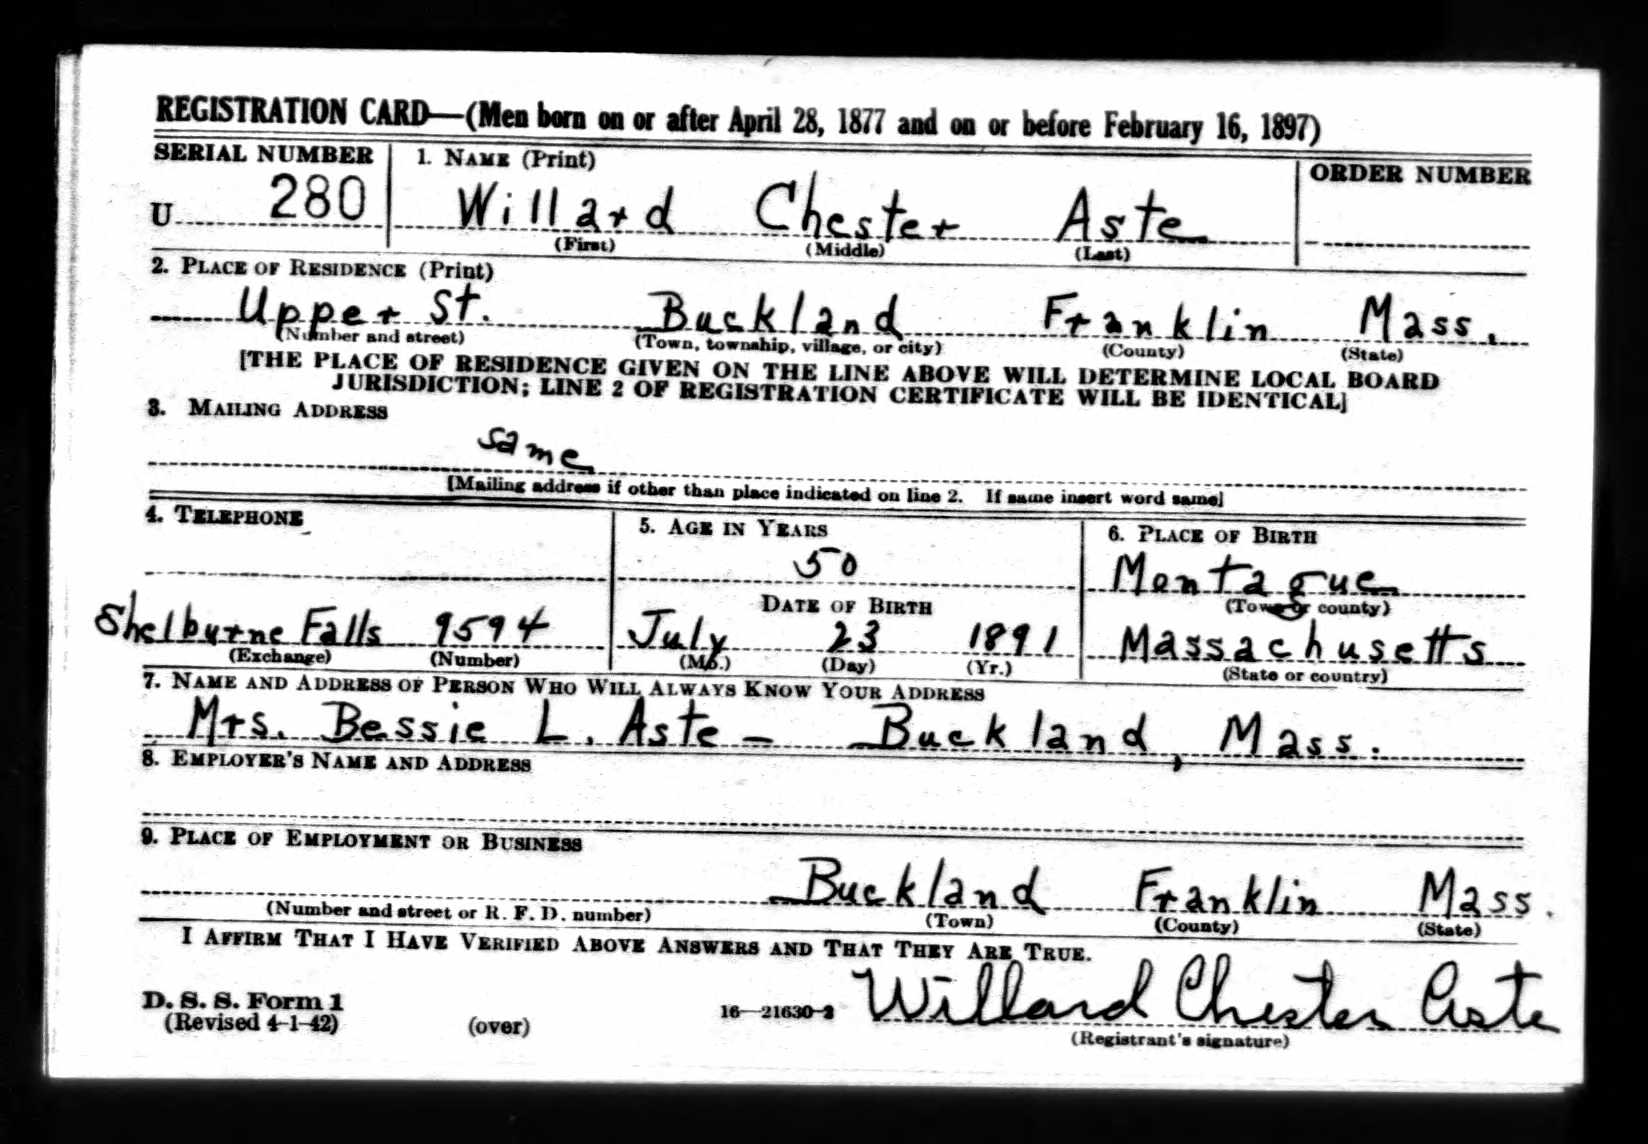 REGISTRATION CARD—(Men born on or after April 28, 1877 and on or before February 16, 1897)
SERIAL NUMBER 1. NAME (Print) ORDER NUMBER
U 280 Willard Chester Aste
(First) (Middle) (Last)
2. PLACE OF RESIDENCE (Print)
Upper St. Buckland Franklin Mass.
(Number and street) (Town, township, village, or city) (County) (State)
[THE PLACE OF RESIDENCE GIVEN ON THE LINE ABOVE WILL DETERMINE LOCAL BOARD
JURISDICTION; LINE 2 OF REGISTRATION CERTIFICATE WILL BE IDENTICAL]
3. MAILING ADDRESS
same
[Mailing address if other than place indicated on line 2. If same insert word same]
4. TELEPHONE 5. AGE IN YEARS 6. PLACE OF BIRTH
50 Montague
DATE OF BIRTH (Town or county)
Shelburne Falls 9594 July 23 1891 Massachusetts
(Exchange) (Number) (Mo.) (Day) (Yr.) (State or country)
7. NAME AND ADDRESS OF PERSON WHO WILL ALWAYS KNOW YOUR ADDRESS
Mrs. Bessie L. Aste — Buckland, Mass.
8. EMPLOYER'S NAME AND ADDRESS
9. PLACE OF EMPLOYMENT OR BUSINESS
Buckland Franklin Mass.
(Number and street or R. F. D. number) (Town) (County) (State)
I AFFIRM THAT I HAVE VERIFIED ABOVE ANSWERS AND THAT THEY ARE TRUE.
D. S. S. Form 1
(Revised 4-1-42) (over) 16—21630-2 Willard Chester Aste
(Registrant's signature)